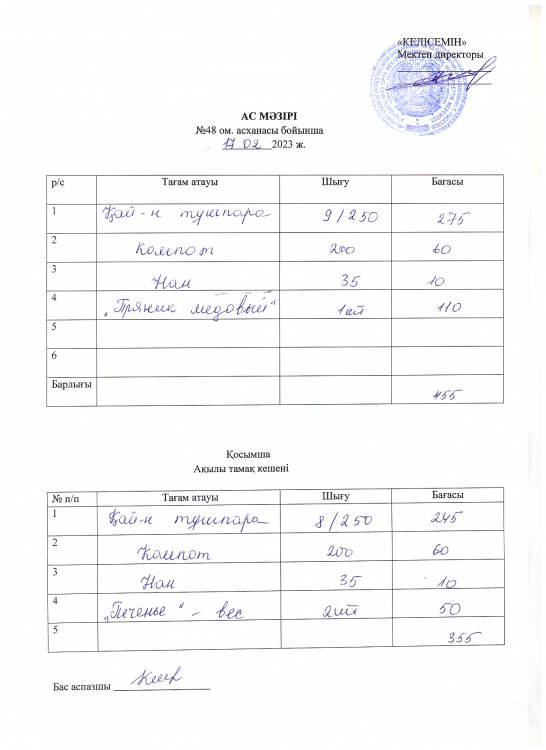 «КЕЛІСЕМІН»
Мектеп директоры
АС МӘЗІРІ
№48 ом. асханасы бойынша
17.02 2023 ж.
р/с Тағам атауы Шығу Бағасы
1 Қай-н тушпара 9/250 275
2 Компот 200 60
3 Нан 35 10
4 „Пряник медовый" 1шт 110
5
6
Барлығы 455
Қосымша
Ақылы тамақ кешені
№ п/п Тағам атауы Шығу Бағасы
1 Қай-н тушпара 8/250 245
2 Компот 200 60
3 Нан 35 10
4 „Печенье" - вес 2шт 50
5 355
Бас аспазшы